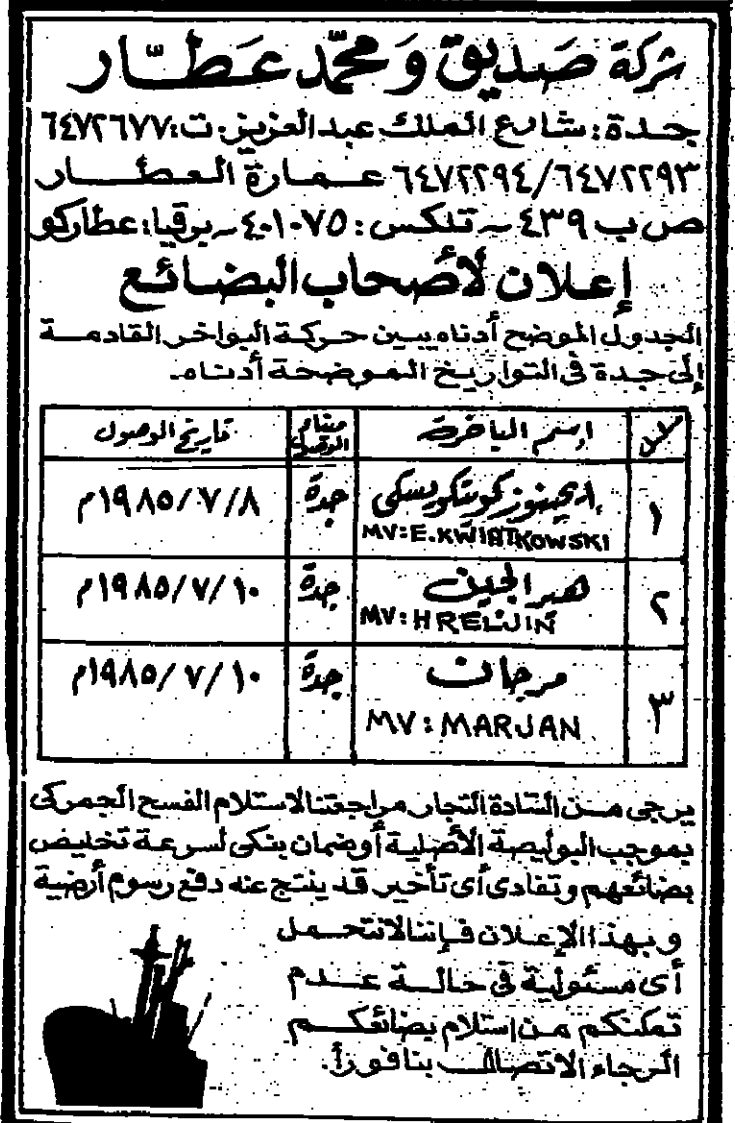 شركة صديق و محمد عطار
جدة: شارع الملك عبدالعزيز. ت: ٦٤٧٢٦٧٧
٦٤٧٢٢٩٤/٦٤٧٢٢٩٣ عمارة العطار
ص ب ٤٣٩ ~ تلكس: ٤٠١٠٧٥ ~ برقيا: عطاركو
إعلان لأصحاب البضائع
الجدول الموضح أدناه يبين حركة البواخر القادمة
إلى جدة في التواريخ الموضحة أدناه.
إسم الباخرة ميناء الوصول تاريخ الوصول
١ كويتكويسكى جدة ١٩٨٥/٧/٨م
MV: E. KWIATKOWSKI
٢ هيرالجين جدة ١٩٨٥/٧/١٠م
MV: HRELJIN
٣ مرجان جدة ١٩٨٥/٧/١٠م
MV: MARJAN
يرجى من السادة التجار مراجعتنا لاستلام الفسح الجمركى
بموجب البوليصة الأصلية أو ضمان بنكى لسرعة تخليص
بضائعهم وتفادى أى تأخير قد ينتج عنه دفع رسوم أرضية
وبهذا الإعلان فإننا لا نتحمل
أى مسئولية فى حالة عدم
تمكنكم من إستلام بضائعكم
الرجاء الاتصال بنا فوراً.